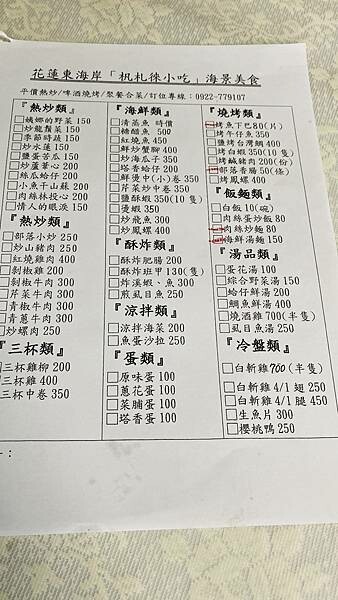 花蓮東海岸「杋札徠小吃」海景美食
平價熱炒/啤酒燒烤/聚餐合菜/訂位專線:0922-779107
『熱炒類』
□姨娜的野菜 150
□炒龍鬚菜 150
□季節時蔬 150
□炒水蓮 150
□鹽蛋苦瓜 150
□炒蘆葦心 200
□絲瓜蛤仔 200
□小魚干山蘇 200
□肉絲林投心 200
□情人的眼淚 150
『熱炒類』
□部落小炒 250
□炒山豬肉 250
□紅燒雞肉 400
□剝椒雞 200
□剝椒牛肉 300
□芹菜牛肉 300
□青椒牛肉 300
□青蔥牛肉 300
□炒螺肉 250
『三杯類』
三杯雞柳 200
三杯雞 400
三杯中卷 350
『海鮮類』
□清蒸魚 時價
□糖醋魚 500
□紅燒魚 450
□鮮炒蟹腳 400
□炒海瓜子 350
□塔香蛤仔 200
□鮮燙中(小)卷 350
□芹菜炒中卷 350
□鹽酥蝦 350(10隻)
□燙蝦 350
□炒飛魚 300
□炒鳳螺 400
『酥炸類』
□酥炸肥腸 200
□酥炸班甲 130(隻)
□炸溪蝦、魚 300
□煎虱目魚 250
『涼拌類』
□涼拌海菜 200
□魚蛋沙拉 250
『蛋類』
□原味蛋 100
□蔥花蛋 100
□菜脯蛋 100
□塔香蛋 100
『燒烤類』
□烤魚下巴 80(片)
□烤午仔魚 350
□鹽烤台灣鯛 400
□烤白蝦 350(10隻)
□烤鹹豬肉 200(份)
□部落香腸 50(條)
□烤鳳螺 400
『飯麵類』
□白飯 10(碗)
□肉絲蛋炒飯 80
□肉絲炒麵 80
□海鮮湯麵 150
『湯品類』
□蛋花湯 100
□綜合野菜湯 150
□蛤仔鮮湯 200
□鯛魚鮮湯 400
□燒酒雞 700(半隻)
□虱目魚湯 250
『冷盤類』
□白斬雞 700(半隻)
□白斬雞 4/1 翅 250
□白斬雞 4/1 腿 450
□生魚片 300
□櫻桃鴨 250